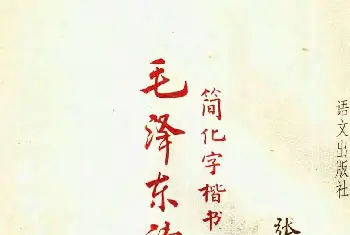 语文出版社
张
简化字楷书
毛泽东